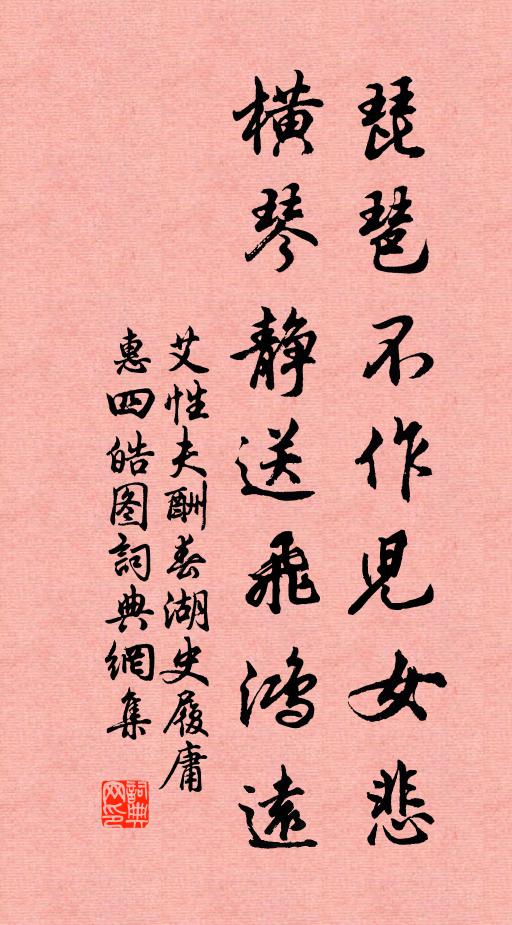 琵琶不作児女悲
横琴靜送飛鴻遠
艾性夫酬春湖史履庸
惠四皓图詞典網集
詞典网印